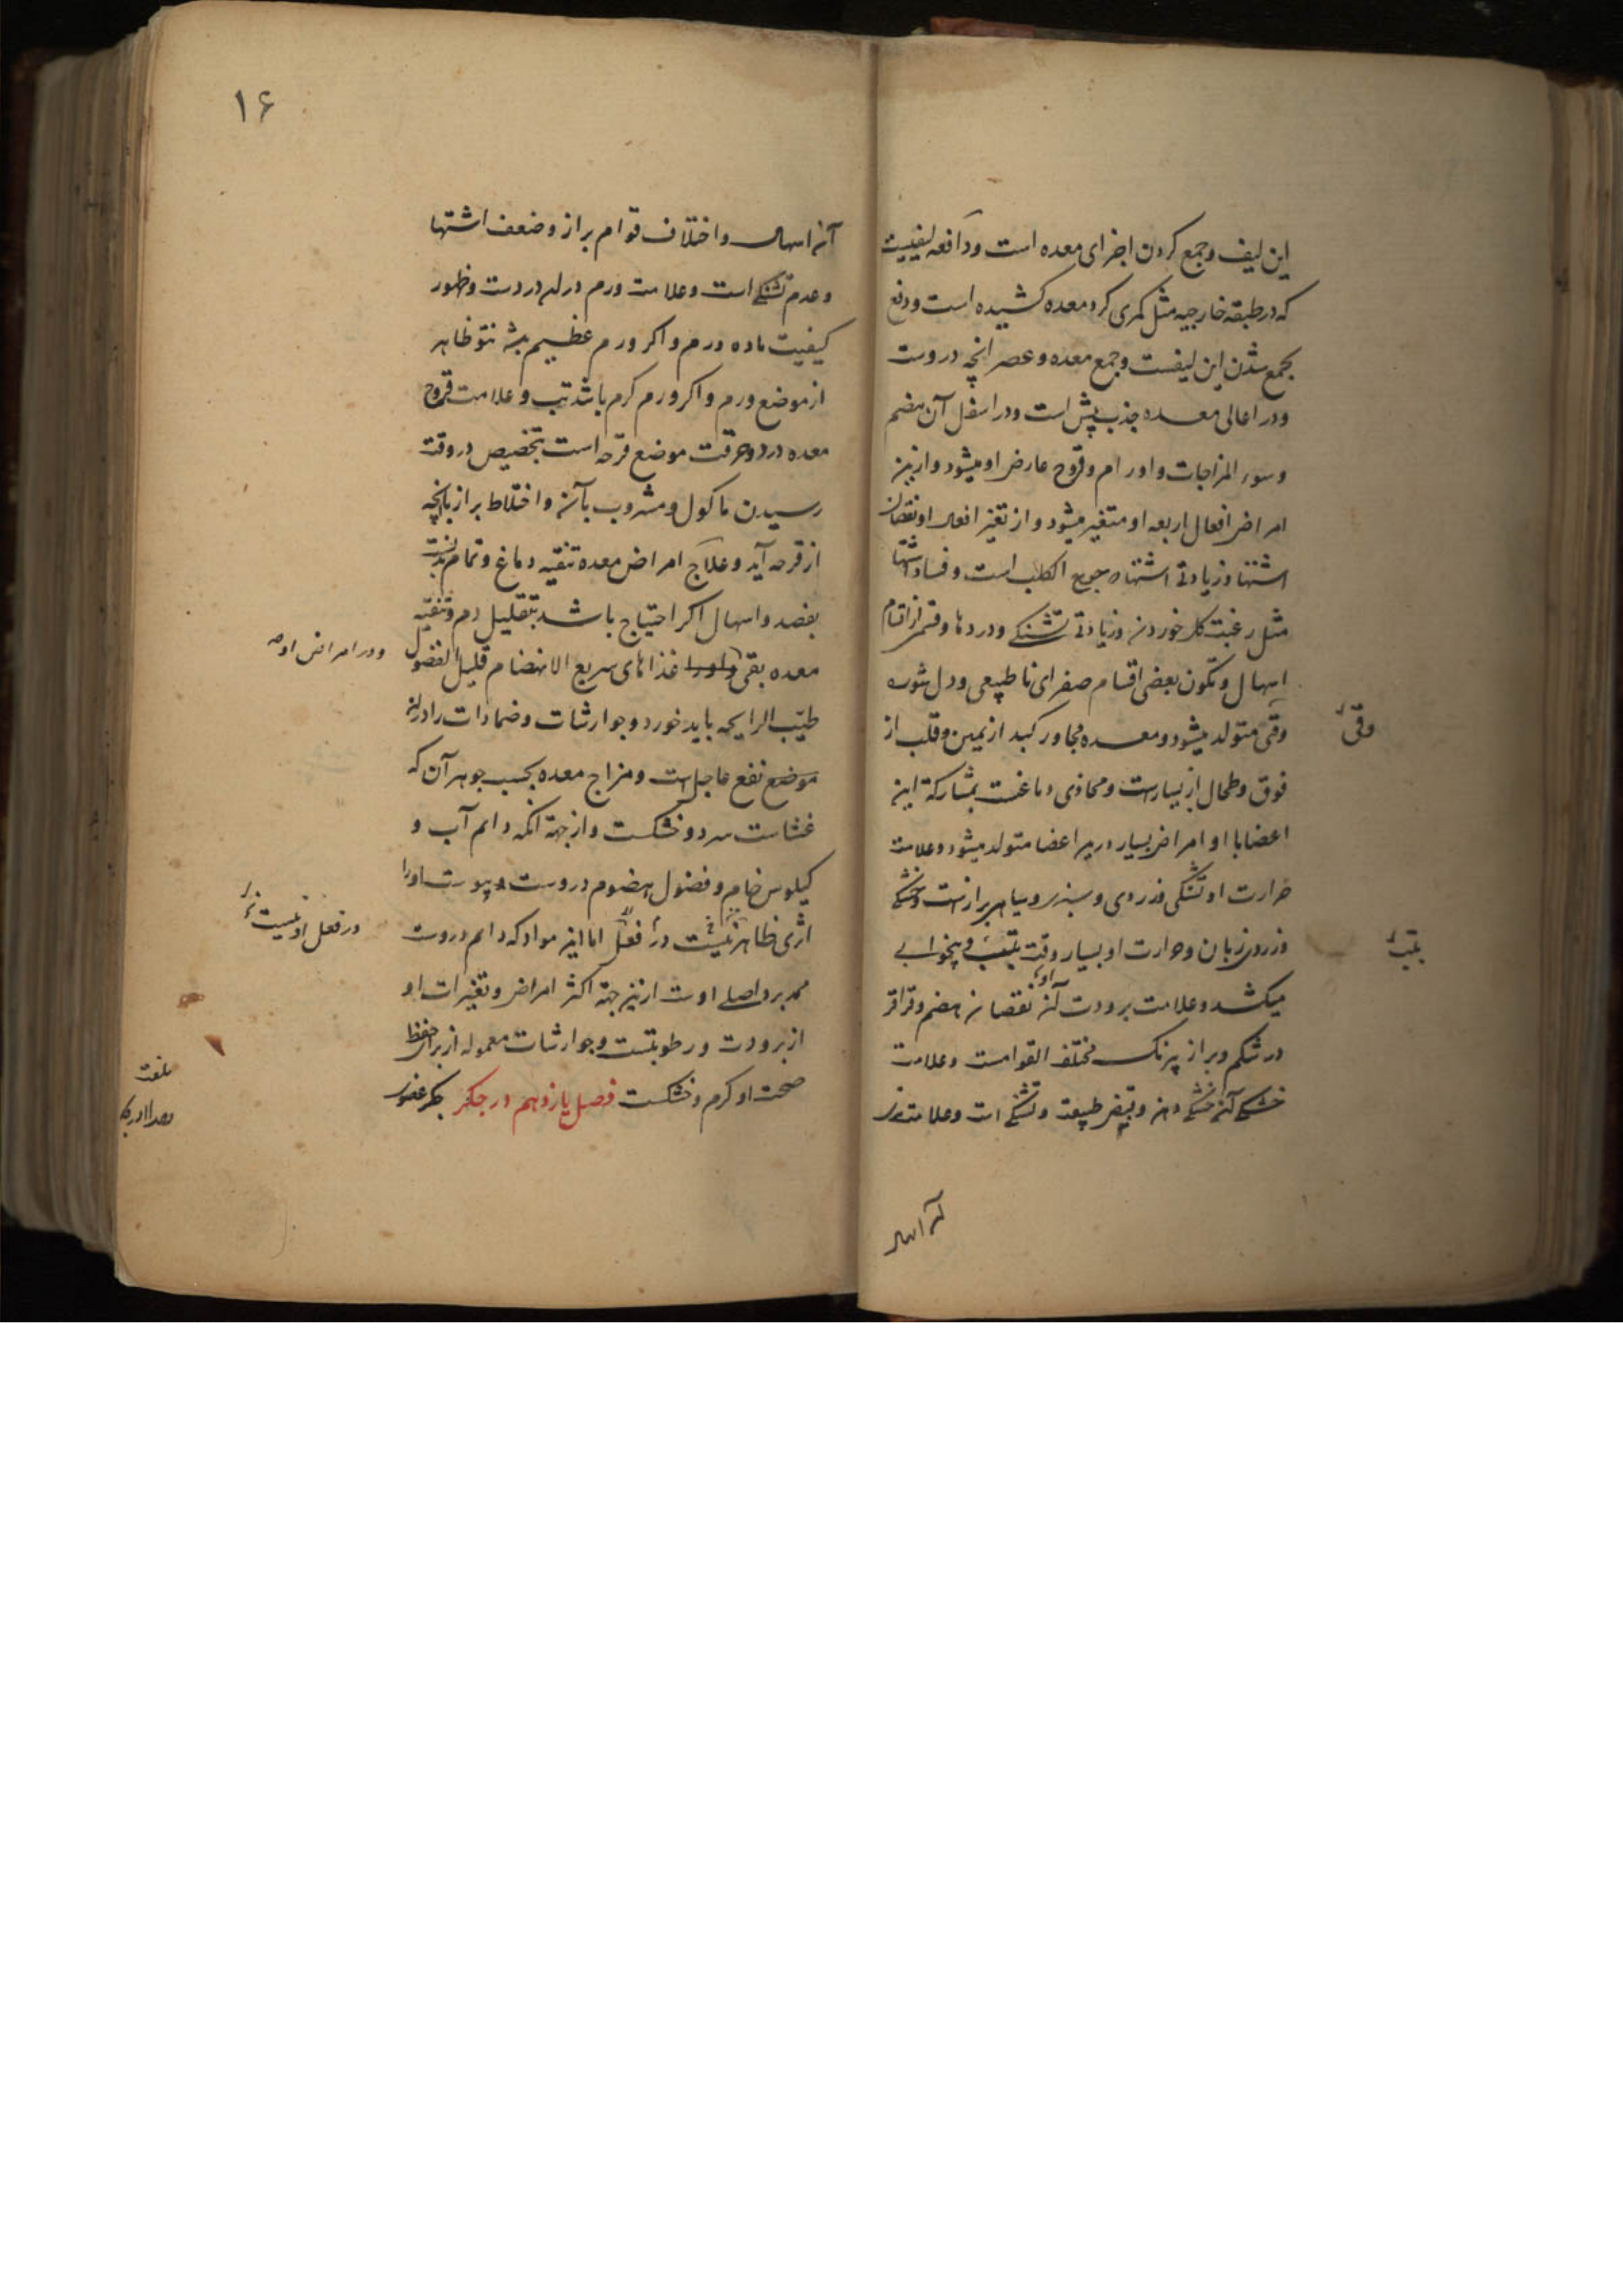 این لیف و جمع کردن اجزای معده است و دافعه لیفیست
که در طبقه خارجیه مثل کمری کرد معده کشیده است و دفع
بجمع شدن این لیفست و جمع معده و عصر انچه دروست
و در اعالی معده جذب پیش است و در اسفل آن هضم
و سوء المزاجات و اورام و قروح عارض او میشود و ازین
امراض افعال اربعه او متغیر میشود و از تغیر افعال او نقصان
اشتها و زیادتی اشتها جوع الکلب است و فساد اشتها
مثل رغبت کل خوردن و زیادتی تشنکی و دردها و قسم از اقسام
اسهال و تکون بعضی اقسام صفرای نا طبیعی و دل شوره
وقی متولد میشود و معده مجاور کبد از یمین و قلب از
وقی
فوق و طحال از یسارست و محاذی دماغست بمشارکة این
اعضا با او امراض بسیار درین اعضا متولد میشود و علامت
حرارت او تشنکی و زردی و سبزی و سیاهی برازست و خشکی
و زردی زبان و حرارت او بسیار وقت بتب و بیخوابی
بتب
میکشد و علامت برودت آن نقصان هضم و قراقر
در شکم و براز بیرنک مختلف القوامست و علامت
خشکی آن خشکی دهن و قبض طبیعت و تشنکی است و علامت تری
آن اسهال
۱۶
آن اسهال و اختلاف قوام براز و ضعف اشتها
و عدم تشنکی است و علامت ورم در له دردست و ظهور
کیفیت ماده ورم و اکر ورم عظیم باشد نتو ظاهر
از موضع ورم و اکر ورم کرم باشد تب و علامت قروح
معده درد و حرقت موضع قرحه است بتخصیص در وقت
رسیدن ماکول و مشروب بآن و اختلاط براز بانچه
از قرحه آید و علاج امراض معده تنقیه دماغ و تمام بدنست
بفصد و اسهال اکر احتیاج باشد بتقلیل دم و تنقیه
معده بقی و او را غذاهای سریع الانهضام قلیل الفضول
و در امراض او
طیب الرایحه باید خورد و جوارشات و ضمادات را درین
موضع نفع عاجل است و مزاج معده بحسب جوهر آن که
غشاست سرد و خشکست و از جهة انکه دایم آب و
کیلوس خام و فضول هضوم دروست و یبوست او را
اثری ظاهر نیست در فعل اما این مواد که دایم دروست
در فعل او نیست
ممد برد اصلی اوست ازین جهة اکثر امراض و تغیرات او
از برودت و رطوبتست و جوارشات معموله از برای حفظ
صحت او کرم و خشکست فصل یازدهم در جکر جکر عضوی
بلغت